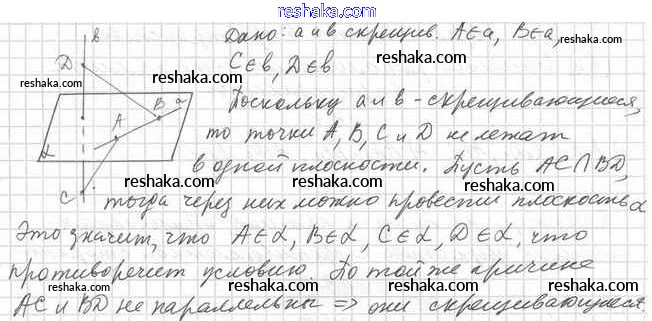 reshaka.com
Дано: a и в скрещив. A∈a, B∈a,
C∈в, D∈в
Поскольку a и в - скрещивающиеся,
то точки A, B, C и D не лежат
в одной плоскости. Пусть AC∩BD,
тогда через них можно провести плоскость α
Это значит, что A∈α, B∈α, C∈α, D∈α, что
противоречит условию. По той же причине
AC и BD не параллельны ⇒ они скрещивающиеся.
в
D
B
a
A
α
C
reshaka.com
reshaka.com
reshaka.com
reshaka.com
reshaka.com
reshaka.com
reshaka.com
reshaka.com
reshaka.com
reshaka.com
reshaka.com
reshaka.com
reshaka.com
reshaka.com